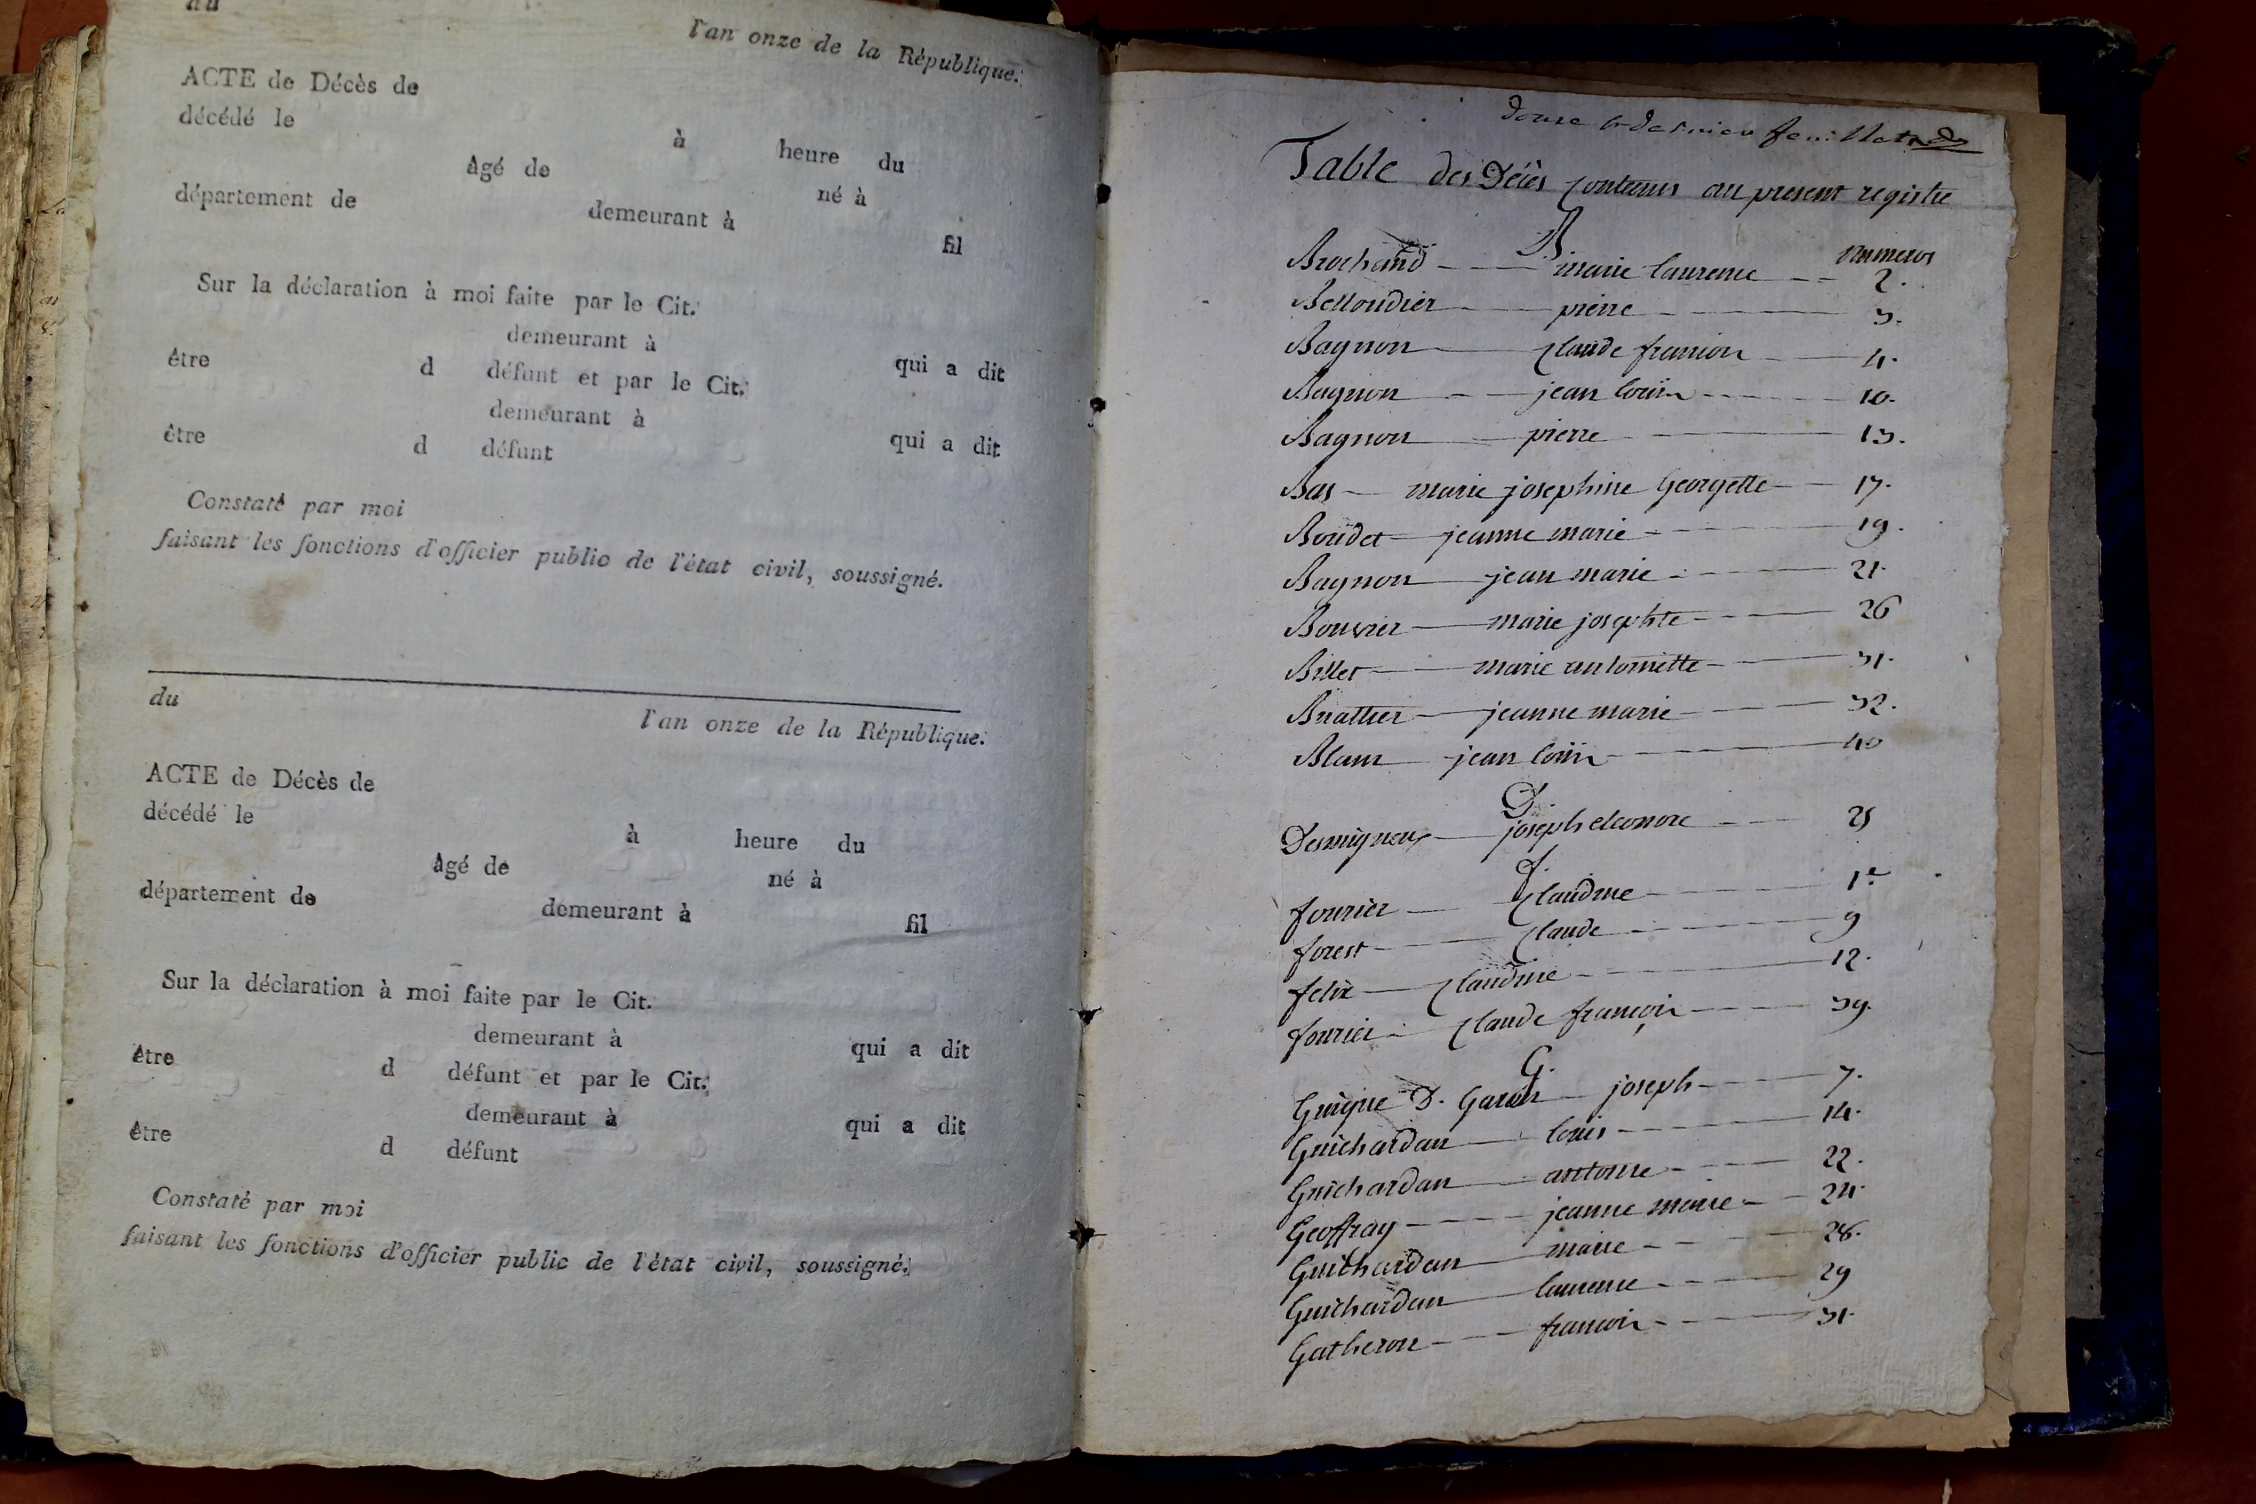 du
l'an onze de la République.
ACTE de Décès de
décédé le
à heure du
âgé de né à
département de demeurant à
fil
Sur la déclaration à moi faite par le Cit.
demeurant à qui a dit
être d défunt et par le Cit.
demeurant à qui a dit
être d défunt
Constaté par moi
faisant les fonctions d'officier public de l'état civil, soussigné.
du
l'an onze de la République.
ACTE de Décès de
décédé le
à heure du
âgé de né à
département de demeurant à
fil
Sur la déclaration à moi faite par le Cit.
demeurant à qui a dit
être d défunt et par le Cit.
demeurant à qui a dit
être d défunt
Constaté par moi
faisant les fonctions d'officier public de l'état civil, soussigné.
douze & dernier feuillet
Table des Décès contenus au present registre
B.
numeros
Brochand marie laurence 2.
Belloudier pierre 3.
Bagnon Claude francois 4.
Bagnon jean louis 10.
Bagnon pierre 13.
Bas marie josephine Georgette 17.
Boudet jeanne marie 19.
Bagnon jean marie 21.
Bouvier marie josephte 26
Billet marie antoinette 31.
Bruattier jeanne marie 32.
Blanc jean louis 40
D.
Desvigneux joseph eleonore 25
f.
fourier Claudine 1.er
forest Claude 9
felix Claudine 12.
fourier Claude françois 39.
G.
Guigue D. Garin joseph 7.
Guichardan louis 14.
Guichardan antoine 22.
Geoffray jeanne marie 24.
Guichardan marie 28.
Guichardan laurence 29
Gatheron francois 31.